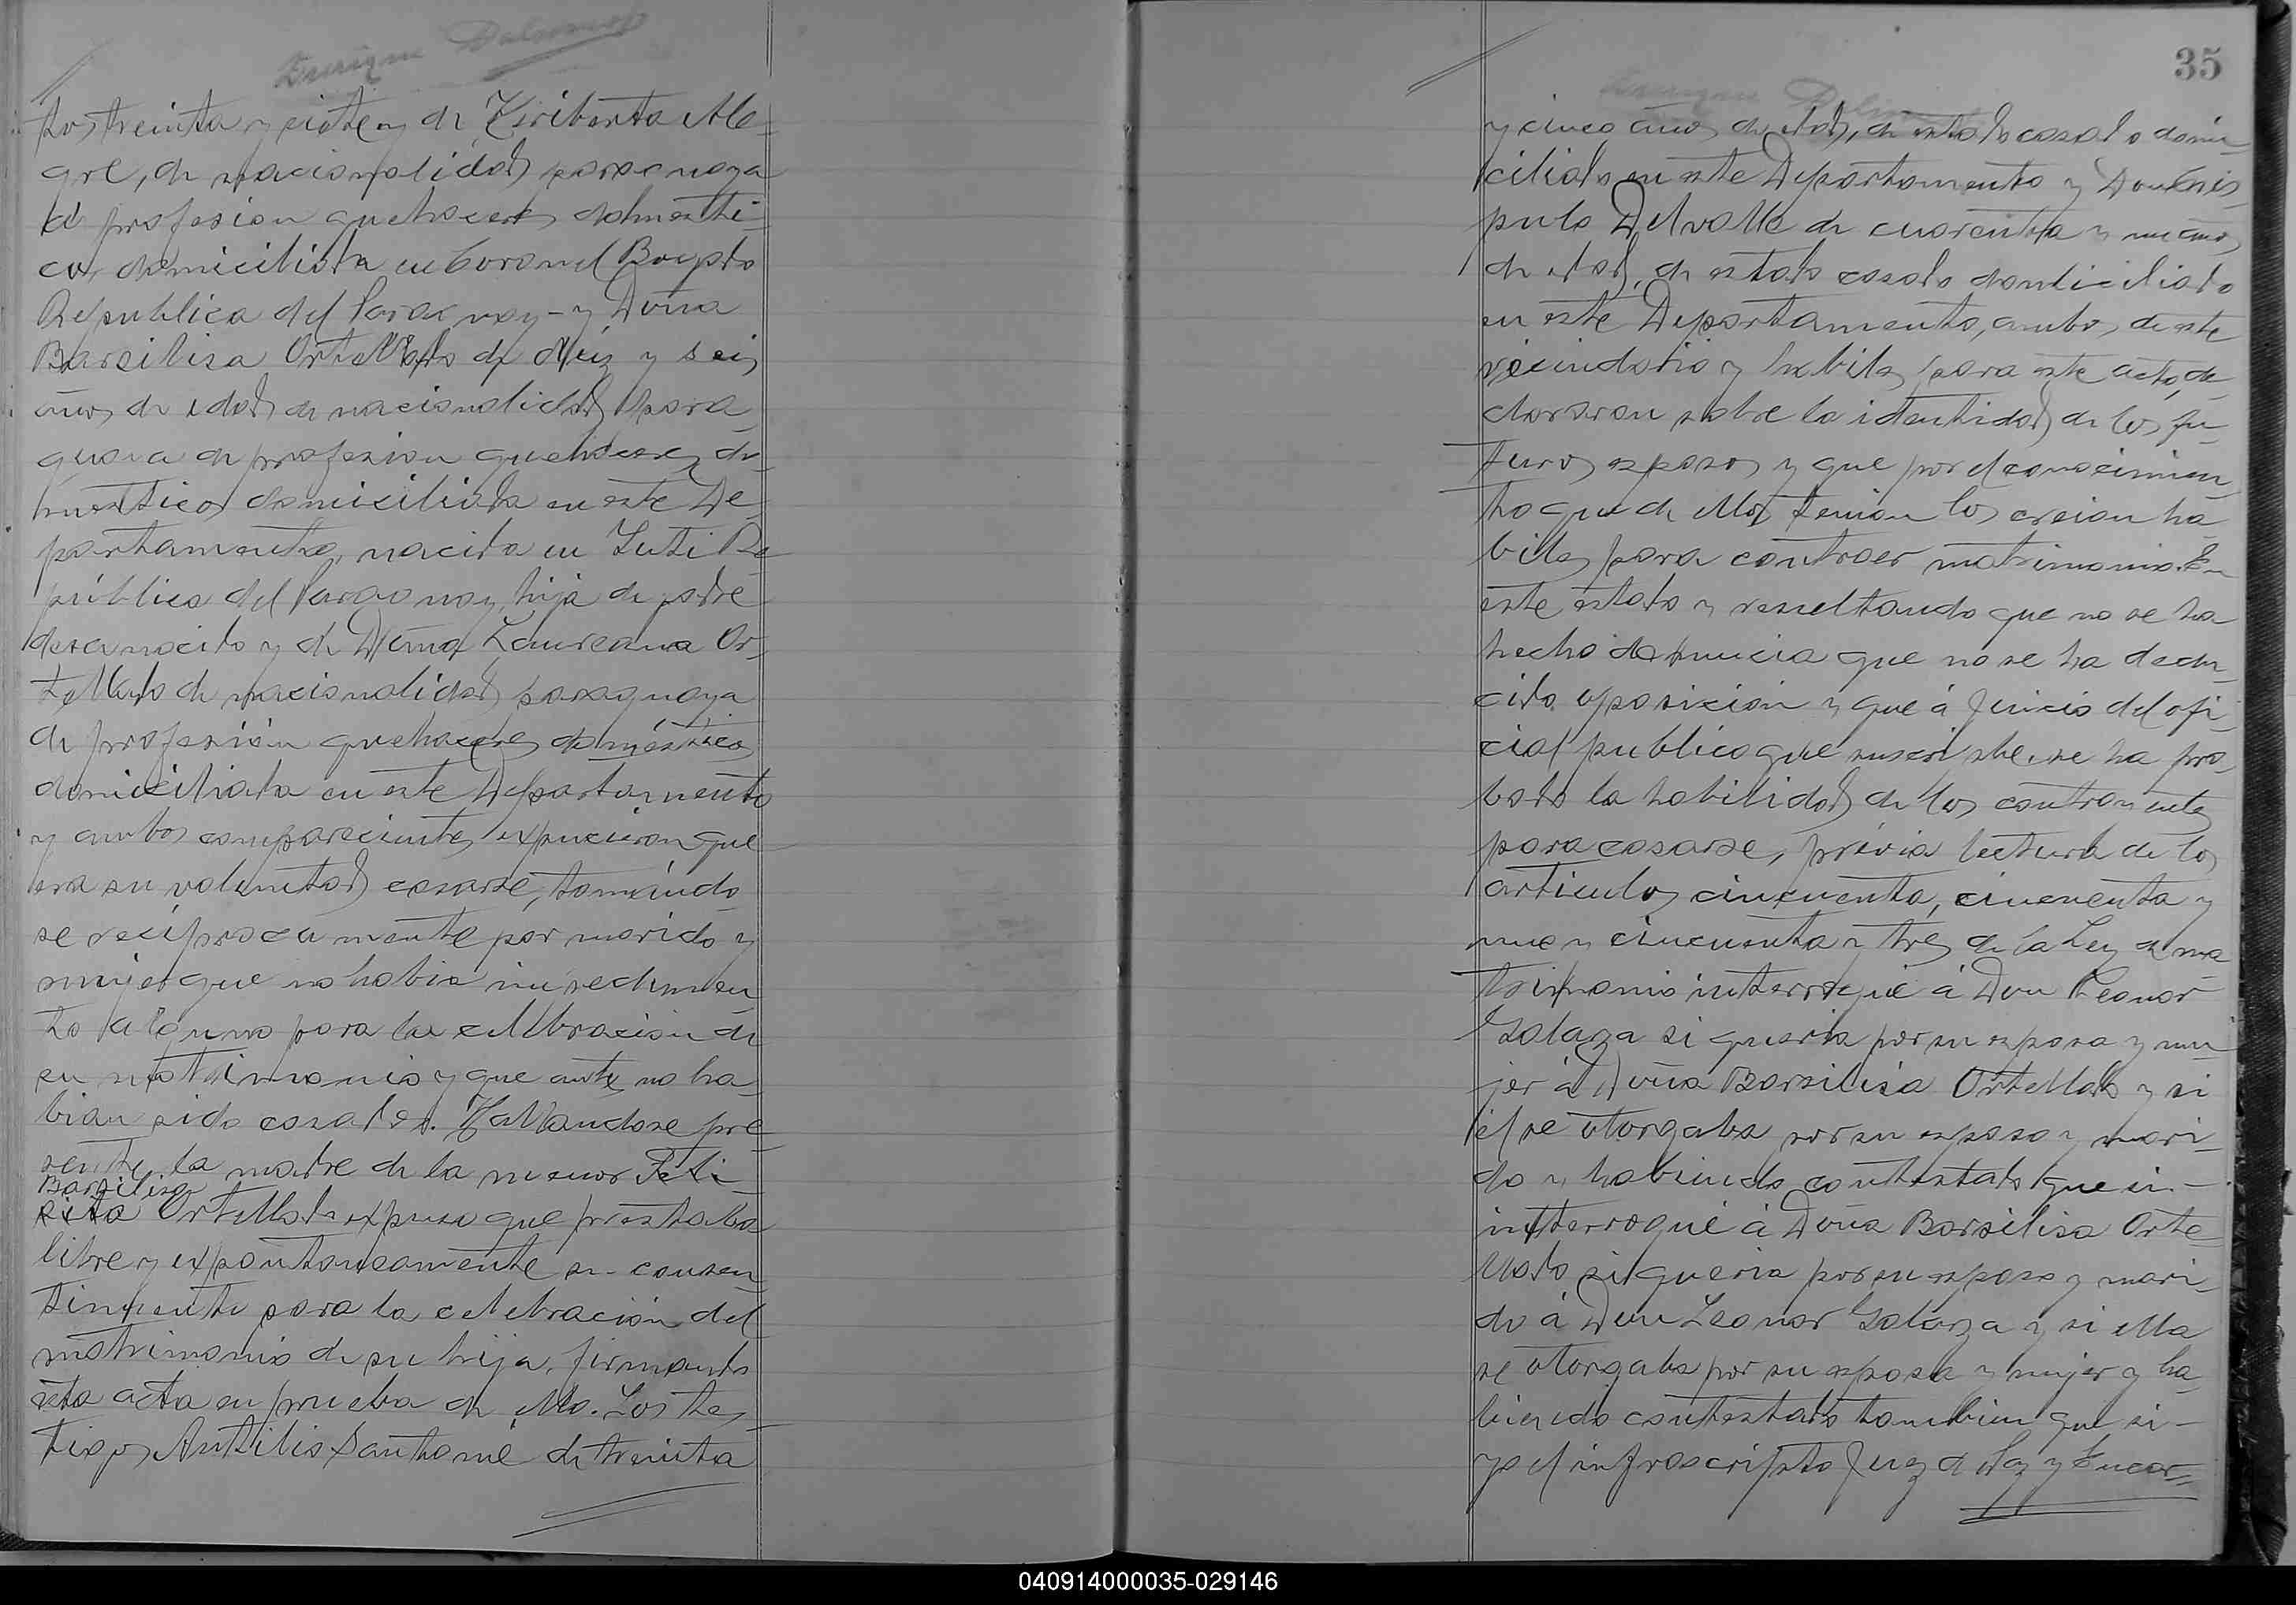 tos treinta y siete y de Heriberta Ale-
gre, de nacionalidad paraguaya
de profesion quehaceres domesti-
cos, domiciliada en Coronel Bogado
Republica del Paraguay - y Doña
Barsilisa Ortellado de diez y seis
años de edad de nacionalidad para-
guaya de profesion quehaceres do-
mesticos domiciliada en este De
partamento, nacida en Yuti Re
pública del Paraguay, hija de padre
desconocido y de Doña Laureana Or-
tellado de nacionalidad paraguaya
de profesión quehaceres domésticos
domiciliada en este Departamento
y ambos comparecientes expucieron que
era su voluntad casarse, tomándo
se recíprocamente por marido y
mujer que no habia impedimen
to alguno para la celebración de
su matrimonio y que antes no ha
bian sido casados. Hallandose pre
sente la madre de la menor Feli-
Barsilisa
sita Ortellado expuso que prestaba
libre y expontaneamente su consen
timiento para la celebración del
matrimonio de su hija, firmando
esta acta en prueba de ello. Los tes
tigos Antilio Santomé de treinta
35
y cinco años de edad, de estado casado domi-
ciliado en este Departamento y Don Cris-
pulo Delvalle de cuarenta y un años
de edad, de estado casado domiciliado
en este Departamento, ambos de este
vecindario y habiles para este acto, de-
clararon sobre la identidad de los fu-
turos esposos y que por el conocimien-
to que de ellos tenian los creian há-
biles para contraer matrimonio. En
este estado y resultando que no se ha
hecho denuncia que no se ha dedu-
cido oposición y que á juicio del ofi-
cial publico que suscribe, se ha pro-
bado la habilidad de los contrayentes
para casarse, prévia lectura de los
articulos cincuenta, cincuenta y
uno y cincuenta y tres de la Ley de ma-
trimonio interrogué á Don Leonor
Galarza si queria por su esposa y mu-
jer á Doña Barsilisa Ortellado y si
él se otorgaba por su esposo y mari-
do y habiendo contestado que si -
interrogué á Doña Barsilisa Orte-
llado si queria por su esposo y mari-
do á Don Leonor Galarza y si ella
se otorgaba por su esposa y mujer y ha-
biendo contestado tambien que si -
yo el infrascripto Juez de Paz y Encar-
040914000035-029146